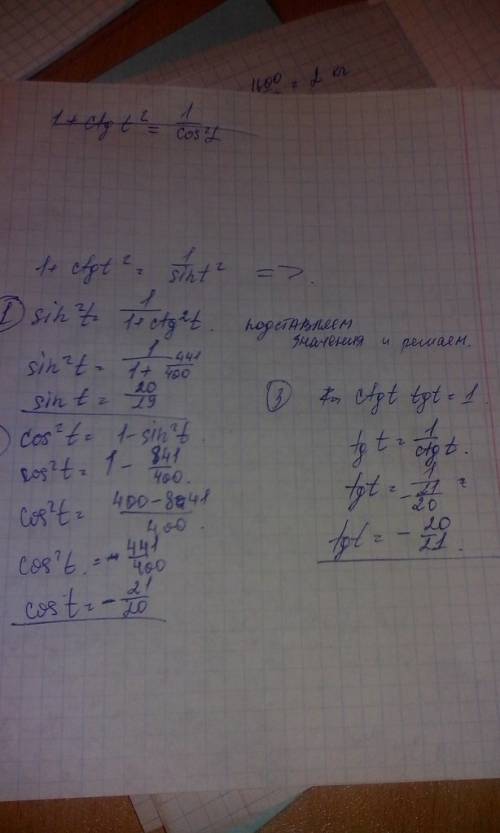 1600 = 2 кг
1 + ctg t² = 1/cos²t
1 + ctgt² = 1/sint² =>.
1) sin²t = 1/(1+ctg²t.
подставляем значения и решаем.
sin²t = 1/(1 + 441/400)
sin t = 20/29
cos²t = 1 - sin²t.
cos²t = 1 - 841/400.
cos²t = (400-841)/400.
cos²t. = -441/400
cos t = -21/20
3) ctgt tgt = 1.
tg t = 1/ctgt.
tgt = 1/(-21/20) =
tgt = -20/21.